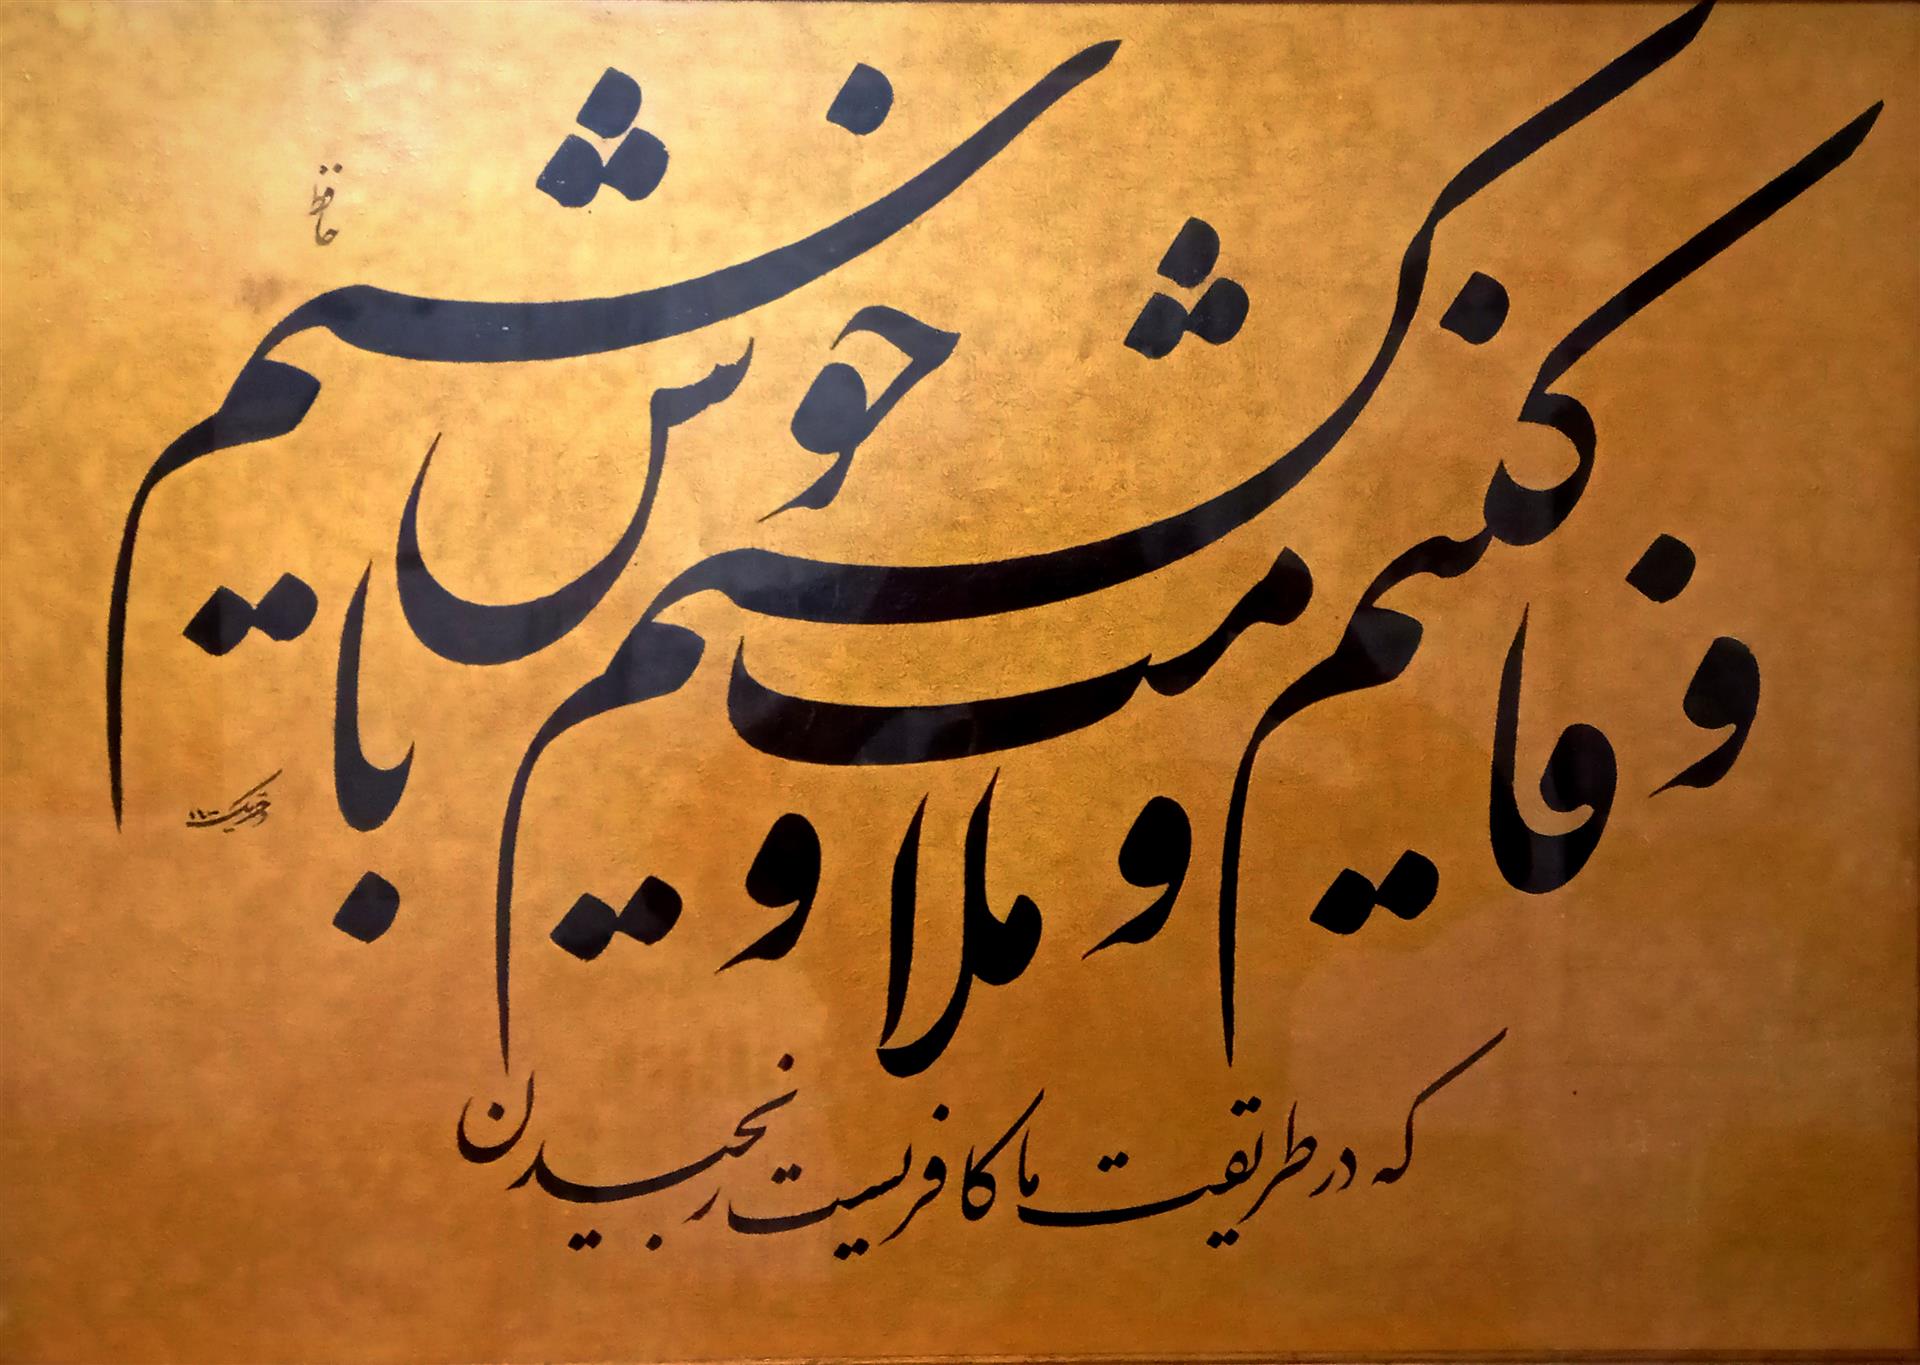 وفا کنیم و ملامت کشیم و خوش باشیم
که در طریقت ما کافریست رنجیدن
حافظ